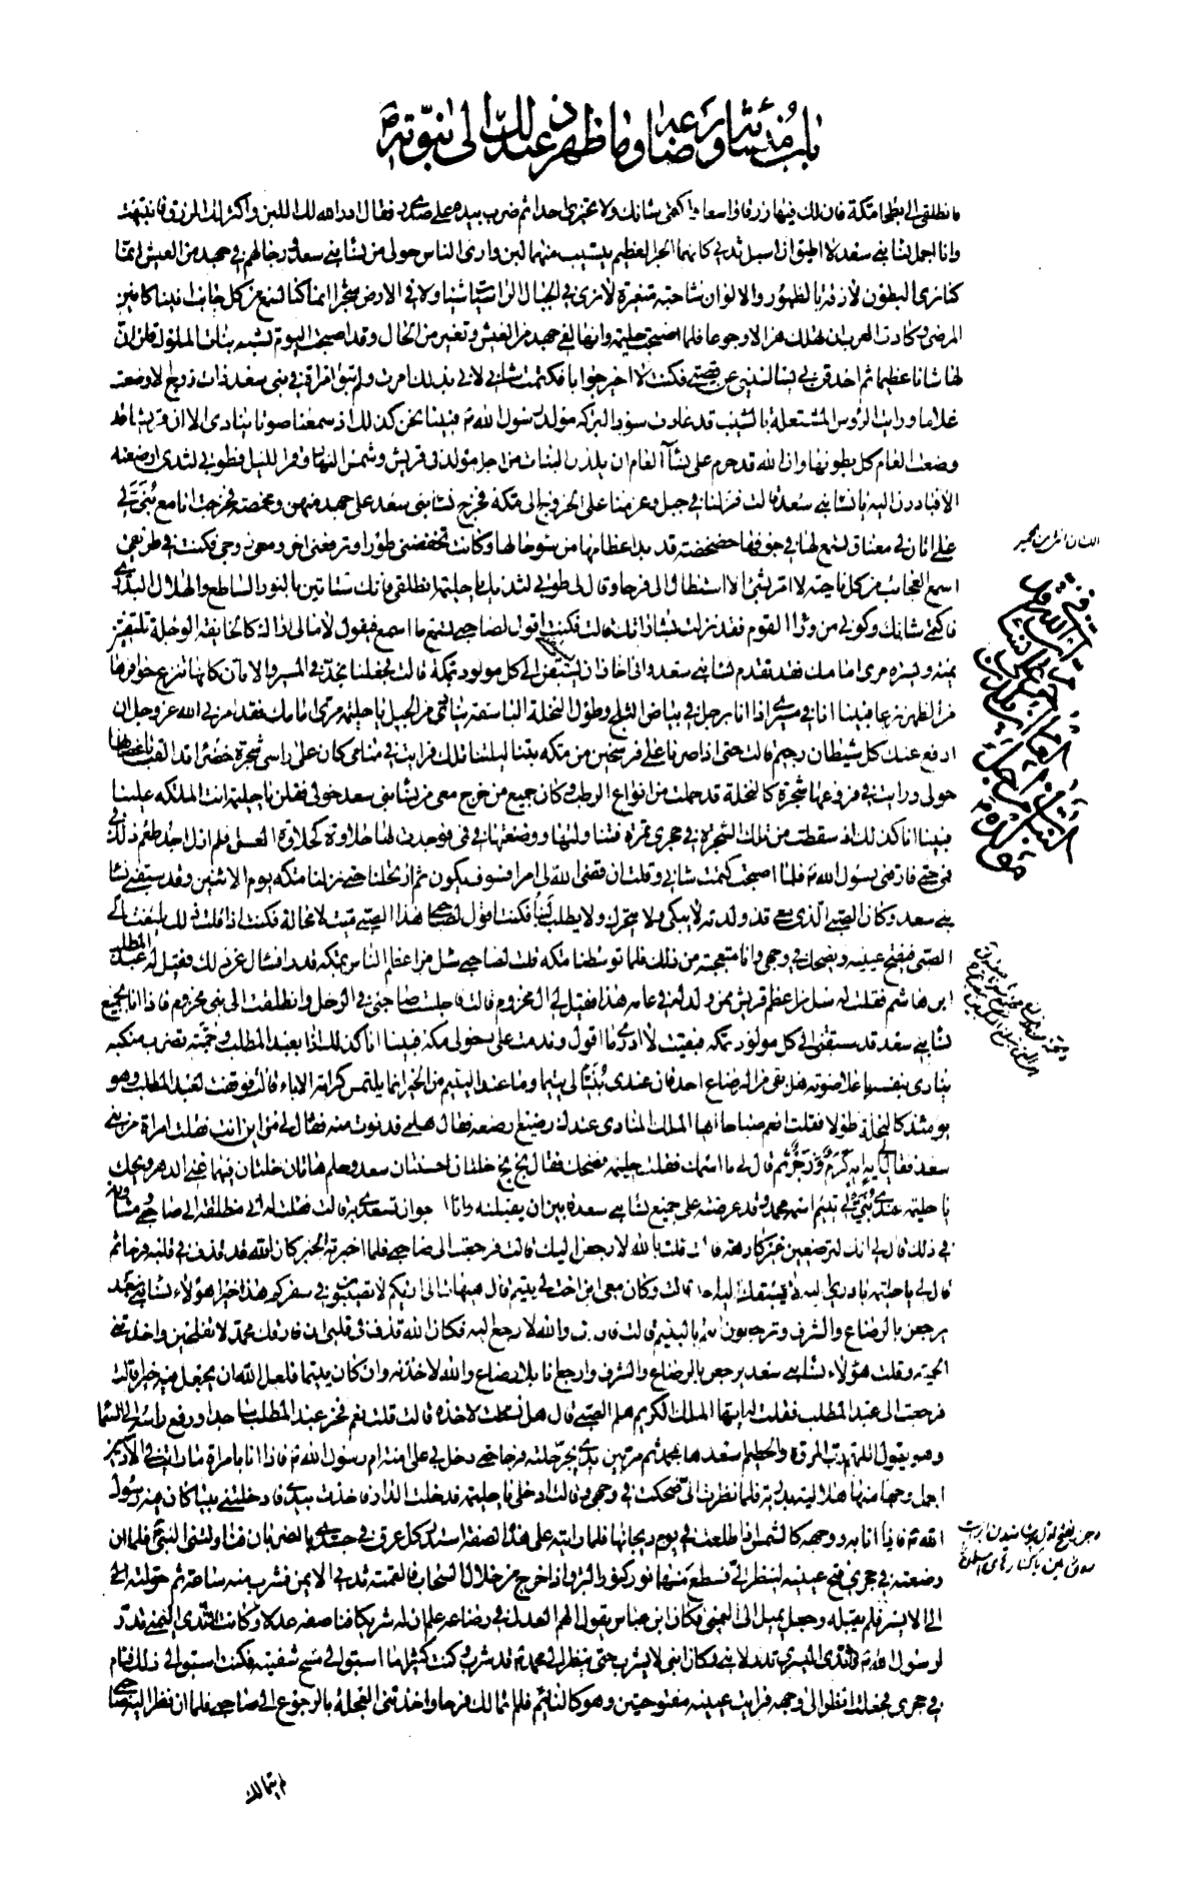 باب منشائه ورضاعه وما ظهر عند ذلك الى نبوته ص
فانطلقي الى بطحاء مكة فان لك فيها رزقا واسعا واكتمي شانك ولا تخبري احدا ثم ضرب بيده على صدري فقال ادر الله لك اللبن واكثر لك الرزق فانتبهت
وانا اجمل نساء بني سعد لا اطيق ان اسبل ثديي كانهما الجر العظيم يتسيب منهما لبن وارى الناس حولي من نساء بني سعد ورجالهم في جهد من العيش انما
كنا نرى البطون لازقة بالظهور والالوان شاحبة متغيرة لا نرى في الجبال الراسيات شيا ولا في الارض شجرا انما كنا نسمع من كل جانب انينا كانين
المرضى وكادت العرب ان تهلك هزلا وجوعا فلما اصبحت حليمة وانها لفي جهد من العيش وتغير من الحال وقد اصبحت اليوم تشبه بنات الملوك قلن ان
لها شانا عظيما ثم احدقن بي يسالنني عن قصتي فكنت لا احير جوابا فكتمت شاني لاني بذلك امرت ولم تبق امراة في بني سعد ذات زوج الا وضعت
غلاما ورايت الرؤس المشتعلة بالشيب قد عادت سودا لبركة مولد رسول الله ص فبينا نحن كذلك اذ سمعنا صوتا ينادي الا ان قريشا قد
وضعت العام كل بطونها وان الله قد حرم على نساء العام ان يلدن البنات من اجل مولد في قريش وشمس النهار وقمر الليل فطوبى لثدي ارضعته
الا فبادرن اليه يا نساء بني سعد قالت فنزلنا في جبل وعزمنا على الخروج الى مكة فخرج نساء بني سعد على جهد منهن ومخمصة فخرجت انا مع بني لي
على اتان لي معناق تسمع لها في جوفها خضخضة قد بدا عظامها من سوء حالها وكانت تخفضني طورا وترفعني اخرى ومعي زوجي فكنت في طريقي
اسمع العجائب من كل ناحية لا امر بشئ الا استطال الي فرحا وقال لي طوبى لثدييك يا حليمة انطلقي فانك ستاتين بالنور الساطع والهلال البدري
فاكتمي شانك وكوني من وراء القوم فقد نزلت بشاراتك قالت فكنت اقول لصاحبي تسمع ما اسمع فيقول لا ما لي اراك كالخائفة الوجلة تلتفتين
يمنة ويسرة مري امامك فقد تقدم نساء بني سعد واني اخاف ان يسبقن الى كل مولود بمكة قالت فجعلنا نجد في المسير والاتان كانها تنزع حوافرها
من الظهر نزعا فبينا انا في مسيري اذا انا برجل في بياض الثلج وطول النخلة الباسقة ينادي من الجبل يا حليمة مري امامك فقد امرني الله عز وجل ان
ادفع عنك كل شيطان رجيم قالت حتى اذا صرنا على فرسخين من مكة بتنا ليلتنا تلك فرايت في منامي كان على راسي شجرة خضراء قد القت باغصانها
حولي ورايت في فروعها شجرة كالنخلة قد حملت من انواع الرطب وكان جميع من خرج معي من نساء بني سعد حولي فقلن يا حليمة انت الملكة علينا
فبينا انا كذلك اذ سقطت من تلك الشجرة في حجري تمرة فتناولتها ووضعتها في في فوجدت لها حلاوة كحلاوة العسل فلم ازل اجد طعم ذلك في
في حتى فارقني رسول الله ص فلما اصبحت كتمت شاني وقلت ان قضى الله لي امرا فسوف يكون ثم ارتحلنا حتى نزلنا مكة يوم الاثنين وقد سبقني نساء
بني سعد وكان الصبي الذي معي قد ولدته لا يبكي ولا يتحرك ولا يطلب لبنا فكنت اقول لصاحبي هذا الصبي ميت لا محالة فكنت اذا قلت ذلك يلتفت الي
الصبي فيفتح عينيه ويضحك في وجهي وانا متعجبة من ذلك فلما توسطنا مكة قلت لصاحبي سل من اعظم الناس بمكة قدرا فسال عن ذلك فقيل له عبد المطلب
ابن هاشم فقلت له سل من اعظم قريش ممن ولد له في عامه هذا فقيل لي ال مخزوم قالت فاجلست صاحبي في الرحل وانطلقت الى بني مخزوم فاذا انا بجميع
نساء بني سعد قد سبقنني الى كل مولود بمكة فبقيت لا ادري ما اقول وندمت على دخولي مكة فبينا انا كذلك اذا بعبد المطلب وجمته تضرب منكبه
ينادي بنفسه باعلا صوته هل بقي من الرضاع احد فان عندي بنيا لي يتيما وما عند اليتيم من الخير انما يلتمس كرامة الاباء قالت فوقفت لعبد المطلب وهو
يومئذ كالنخلة طولا فقلت انعم صباحا ايها الملك المنادي عندك رضيع ارضعه فقال هلمي فدنوت منه فقال لي من اين انت فقلت امراة من بني
سعد فقال لي ايه ايه كرم وزجر ثم قال لي ما اسمك فقلت حليمة فضحك فقال بخ بخ خلتان حسنتان سعد وحلم هاتان خلتان فيهما غنى الدهر ويحك
يا حليمة عندي بني لي يتيم اسمه محمد وقد عرضته على جميع نساء بني سعد فابين ان يقبلنه وانا ارجو ان تسعدي به قالت فقلت له اني منطلقة الى صاحبي مشاورة
في ذلك قال لي انك لترضعين غير كارهة قالت قلت بالله لارجعن اليك قالت فرجعت الى صاحبي فلما اخبرته الخبر كان الله قد قذف في قلبه فرحا ثم
قال لي يا حليمة بادري اليه لا يسبقك اليه احد قالت وكان معي ابن اخت لي يتيم قال هيهات اني اراكم لا تصيبون في سفركم هذا خيرا هؤلاء نساء بني سعد
يرجعن بالرضاع والشرف وترجعون انتم باليتيم قالت فاردت والله لا ارجع اليه فكان الله قذف في قلبي ان فاتك محمد لا تفلحين واخذتني
الحمية وقلت هؤلاء نساء بني سعد يرجعن بالرضاع والشرف وارجع انا بلا رضاع والله لاخذنه وان كان يتيما فلعل الله ان يجعل فيه خيرا قالت
فرجعت الى عبد المطلب فقلت له ايها الملك الكريم هلم الصبي قال هل نشطت لاخذه قالت قلت نعم فخر عبد المطلب ساجدا ورفع راسه الى السماء
وهو يقول اللهم رب المروة والحطيم اسعدها بمحمد ثم مر بين يدي يجر حلته فرحا حتى دخل بي على امنة ام رسول الله ص فاذا انا بامراة ما رايت في الادميين
اجمل وجها منها هلالية بدرية فلما نظرت الي ضحكت في وجهي وقالت ادخلي يا حليمة فدخلت الدار فاخذت بيدي فادخلتني بيتا كان فيه رسول
الله ص فاذا انا به ووجهه كالشمس اذا طلعت في يوم دجانها فلما رايته على هذه الصفة استدر كل عرق في جسدي بالضربان فناولتني النبي ص فلما ان
وضعته في حجري فتح عينيه لينظر الي فسطع منهما نور كنور البرق اذا خرج من خلال السحاب فالقمته ثديي الايمن فشرب منه ساعة ثم حولته الى
الى الايسر فلم يقبله وجعل يميل الى اليمنى فكان ابن عباس يقول الهم العدل في رضاعه علم ان له شريكا فناصفه عدلا وكانت الثدي اليمنى تدر
لرسول الله ص والثدي اليسرى تدر لابني وكان ابني لا يشرب حتى ينظر الى محمد ص قد شرب وكنت كثيرا ما اسبق الى مسح شفتيه فكنت اسبق الى ذلك فنام
في حجري فجعلت انظر الى وجهه فرايت عينيه مفتوحتين وهو كالنائم فلم اتمالك فرحا واخذتني العجلة بالرجوع الى صاحبي فلما ان نظر اليه صاحبي
لم يتمالك